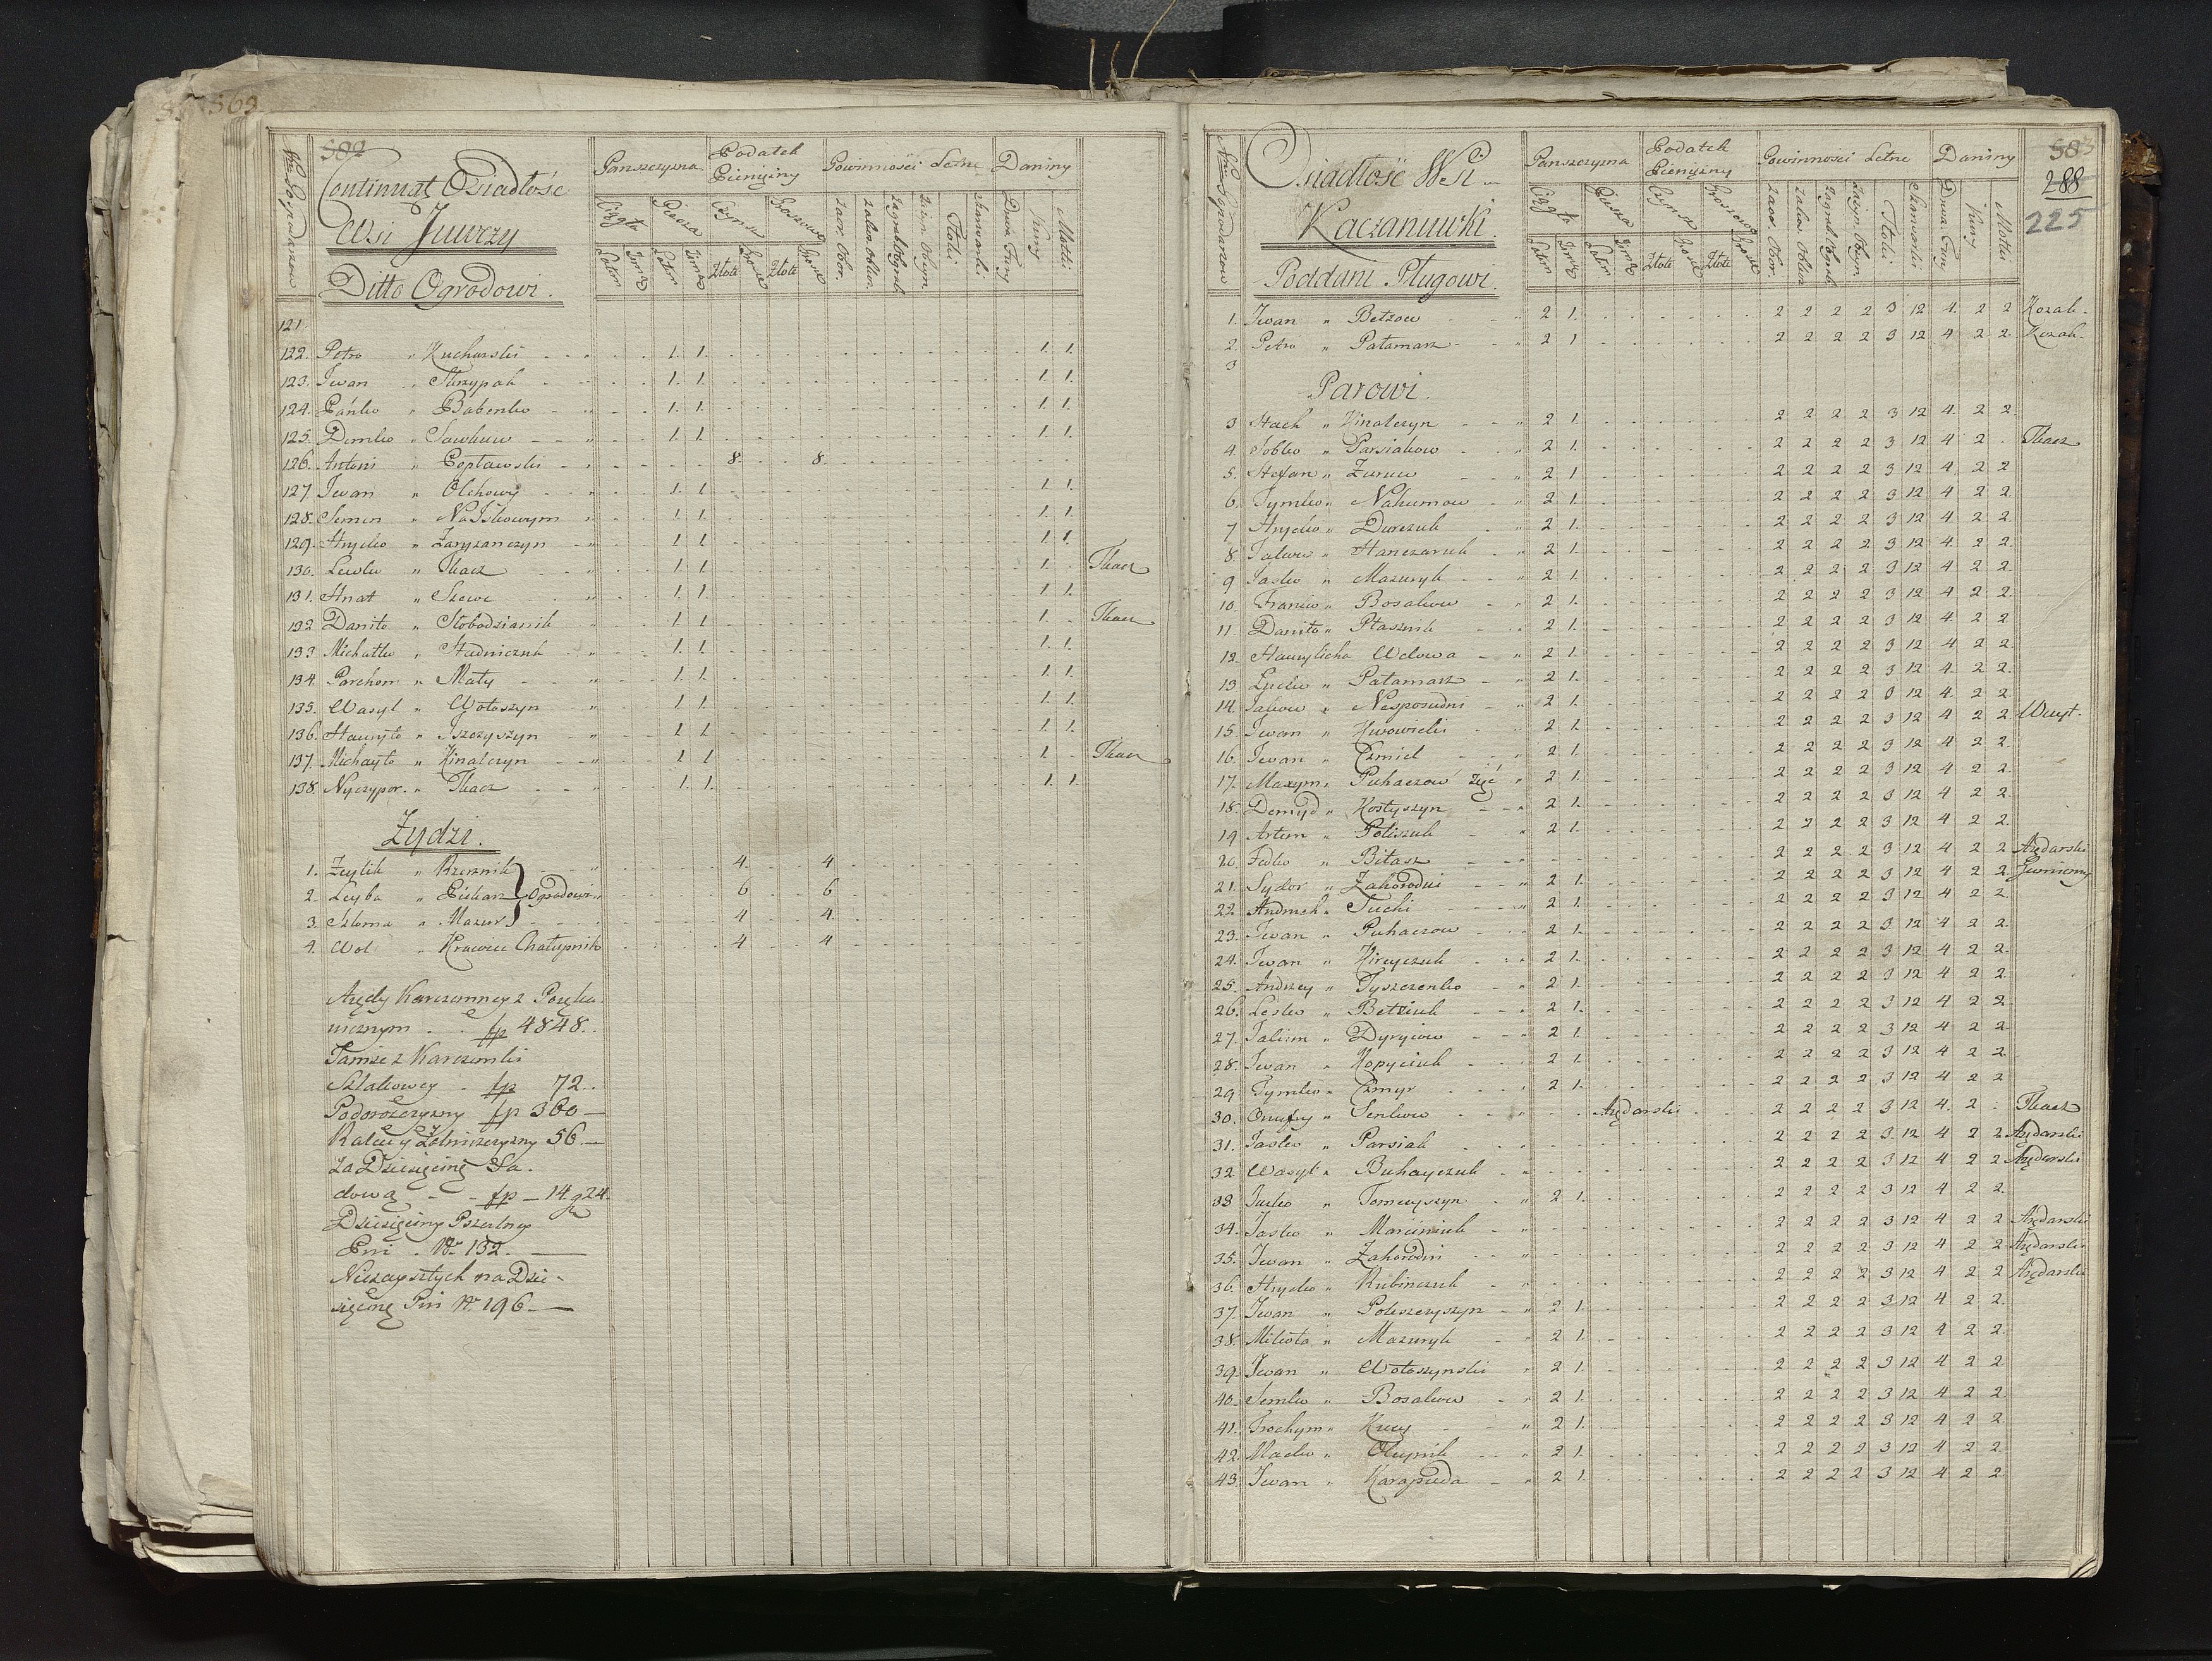 569
582
Continuat Osiadłość
Wsi Juwczy
Ditto Ogrodowi.
Nro Gospodarzow
Panszczyzna
Podatek Pieniężny
Powinności Letne
Daniny
Ciągła
Piesza
Czynsz
Zaor. Obor.
Stoki
Kury
Motki
Złote
Złote
121.
122. Petro " Kucharski 1. 1. 1. 1.
123. Iwan " Skrzypak 1. 1. 1. 1.
124. Pańko " Babenko 1. 1. 1. 1.
125. Demko " Sawkuw 1. 1. 1. 1.
126. Antoni " Popławski 8. 8.
127. Iwan " Olchowy 1. 1. 1. 1.
128. Semen " 1. 1. 1. 1.
129. Hryćko " Zaryzanczyn 1. 1. 1. 1.
130. Lewko " Tkacz 1. 1. 1. Tkacz
131. Hnat " Szewc 1. 1. 1. 1.
132. Daniło " Słobodzianik 1. 1. 1. Tkacz
133. Michałko " Studniczuk 1. 1. 1. 1.
134. Parchom " Mały 1. 1. 1. 1.
135. Wasyl " Wołoszyn 1. 1. 1. 1.
136. Hawryło " Iszczyszyn 1. 1. 1. 1.
137. Michayło " Hinalczyn 1. 1. 1. Tkacz
138. Nyczypor " Tkacz 1. 1. 1. 1.
Żydzi.
1. Zeylik " Rzeznik 4. 4.
2. Leyba " Piekarz Ogrodowi 6 6
3. Szloma " Mazur 4 4
4. Wol " Krawiec Chałupnik 4 4
Arędy Karczemney z
fp 4848.
Tamże z Karczemki
Szlakowey fp 72.
Podorożczyzny fp 360
56.
Za Dziesięcinę Sa-
dową fp 14. g 24.
Dziesięciny Pszczelney
Pni No 132.
Nieżayszłych na Dzie-
sięcinę Pni No 196.
583
288
225
Osiadłość Wsi
Kaczanuwki.
Poddani Pługowi.
Nro Gospodarzow
Panszczyzna
Podatek Pieniężny
Powinności Letne
Daniny
Ciągła
Piesza
Czynsz
Zaor. Obor.
Stoki
Kury
Motki
Złote
Złote
1. Iwan " Betzow 2 1. 2 2 2 2 3 12 4. 2 2 Kozak.
2. Petro " Patamarz 2 1 2 2 2 2 3 12 4 2 2. Kozak.
3
Parowi.
3 Stach " Hinalczyn 2 1. 2 2 2 2 3 12 4. 2 2.
4. Sobko " Parsiakow 2 1. 2 2 2 2 3 12 4 2 . Tkacz
5. Stefan " Zuruw 2 1 2 2 2 2 3 12 4 2 2
6. Tymko " Nahumow 2 1. 2 2 2 2 3 12 4 2 2.
7 Hryćko " Dureczuk 2 1. 2 2 2 2 3 12 4 2 2.
8. Jakow " Hanczaruk 2 1. 2 2 2 2 3 12 4. 2 2.
9 Jasko " Mazuryk 2 1. 2 2 2 2 3 12 4 2 2
10. Franko " Bosakow 2 1. 2 2 2 2 3 12 4 2 2.
11. Daniło " Ptasznik 2 1. 2 2 2 2 3 12 4. 2 2
12. Hawrylicha Wdowa 2 1. 2 2 2 2 3 12 4 2 2.
13 " Patamarz 2 1. 2 2 2 2 3 12 4. 2 2.
14. Jakow " Nesposudni 2 1. 2 2 2 2 3 12 4. 2 2
15. Iwan " 2 1. 2 2 2 2 3 12 4 2 2. Woyt.
16. Iwan " Czmiel 2 1. 2 2 2 2 3 12 4 2 2.
17. Maxym " Puhaczow Zięć 2 1. 2 2 2 2 3 12 4 2 2.
18. Demyd " Kostyszyn 2 1. 2 2 2 2 3 12 4 2 2.
19 Artem " Poliszuk 2 1. 2 2 2 2 3 12 4 2 2.
20. Fedko " Biłasz 2 2 2 2 3 12 4 2 2 Arędarski
21. Sydor " Zahorodni 2 1. 2 2 2 2 3 12 4 2 2 Gumienny
22. Andruch " Suchi 2 1. 2 2 2 2 3 12 4 2 2.
23. Iwan " Puhaczow 2 1. 2 2 2 2 3 12 4 2 2.
24. Iwan " Hireyczuk 2 1. 2 2 2 2 3 12 4 2 2.
25. Andrzey " Tyszczenko 2 1. 2 2 2 2 3 12 4 2 2.
26. Lesko " Betziuk 2 1. 2 2 2 2 3 12 4 2 2
27. Jakim " Dyryiow 2 1. 2 2 2 2 3 12 4 2 2.
28. Iwan " Kopyciuk 2 1. 2 2 2 2 3 12 4 2 2.
29. Tymko " Czmyr 2 1. 2 2 2 2 3 12 4 2 2
30. Onufry " Senkow Arędarski 2 2 2 2 3 12 4. 2 . Tkacz
31. Jasko " Parsiak 2 2 2 2 3. 12 4 2 2 Arędarski
32. Wasyl " Buhayczuk 2 2 2 2 3 12 4 2 2 Arędarski
33 Jacko " Tomczyszyn 2 1. 2 2 2 2 3 12 4 2 2.
34. Jasko " Marciniuk 2 2 2 2 3 12 4 2 2 Arędarski
35. Iwan " Zahorodni 2 2 2 2 3 12 4 2 2 Arędarski
36. Hryćko " Rubinczuk 2 2 2 2 3 12 4 2 2 Arędarski
37. Iwan " Poliszczyszyn 2 1. 2 2 2 2 3 12 4 2 2.
38. Mikoła " Mazuryk 2 1. 2 2 2 2 3 12 4 2 2.
39. Iwan " Wołoszynski 2 1. 2 2 2 2 3 12 4 2 2
40. Semko " Bosakow 2 1. 2 2 2 2 3 12 4 2 2
41. Trochym " Kucy 2 1. 2 2 2 2 3 12 4 2 2
42. Macko " Oleynik 2 1. 2 2 2 2 3 12 4 2 2.
43. Iwan " Karapuda 2 1. 2 2 2 2 3 12 4 2 2